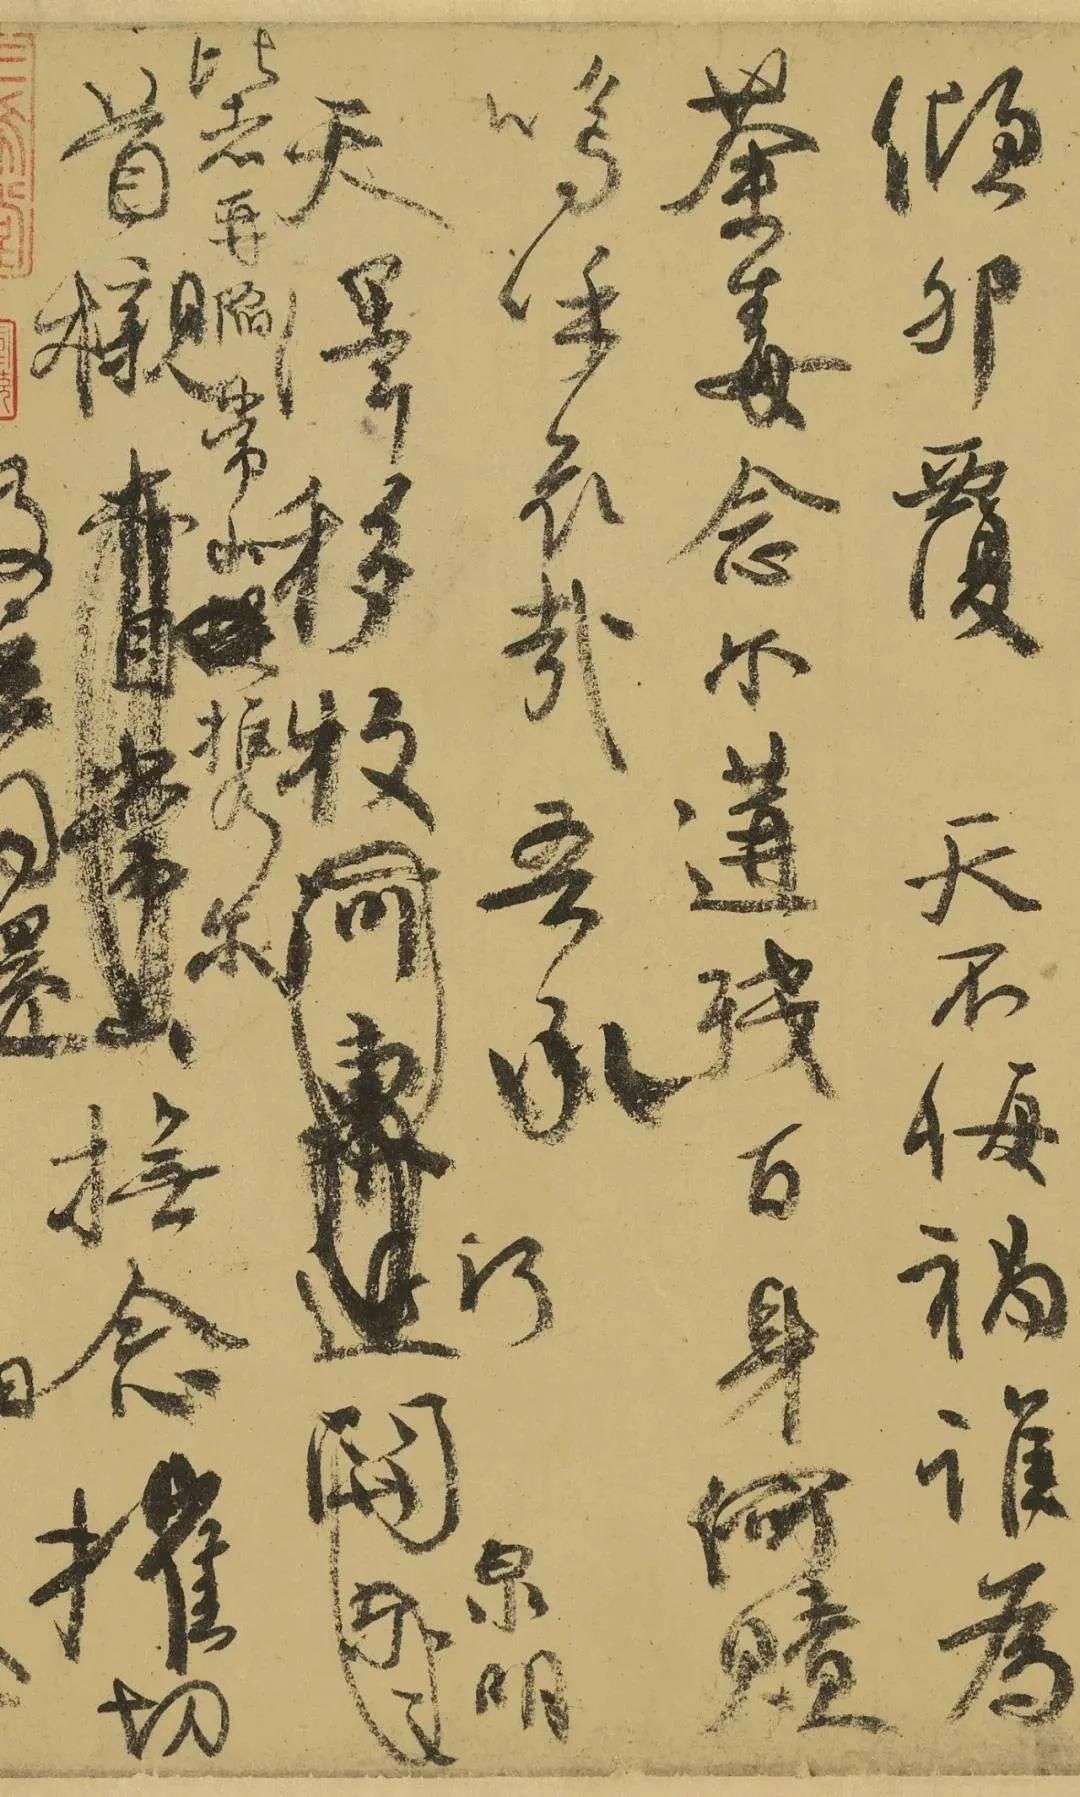 傾卵覆天不悔禍誰為
荼毒念尔遘殘百身何贖
嗚呼哀哉吾承
天澤移牧河關泉明
比者再陷常山携尔
首櫬及茲同還
撫念摧切